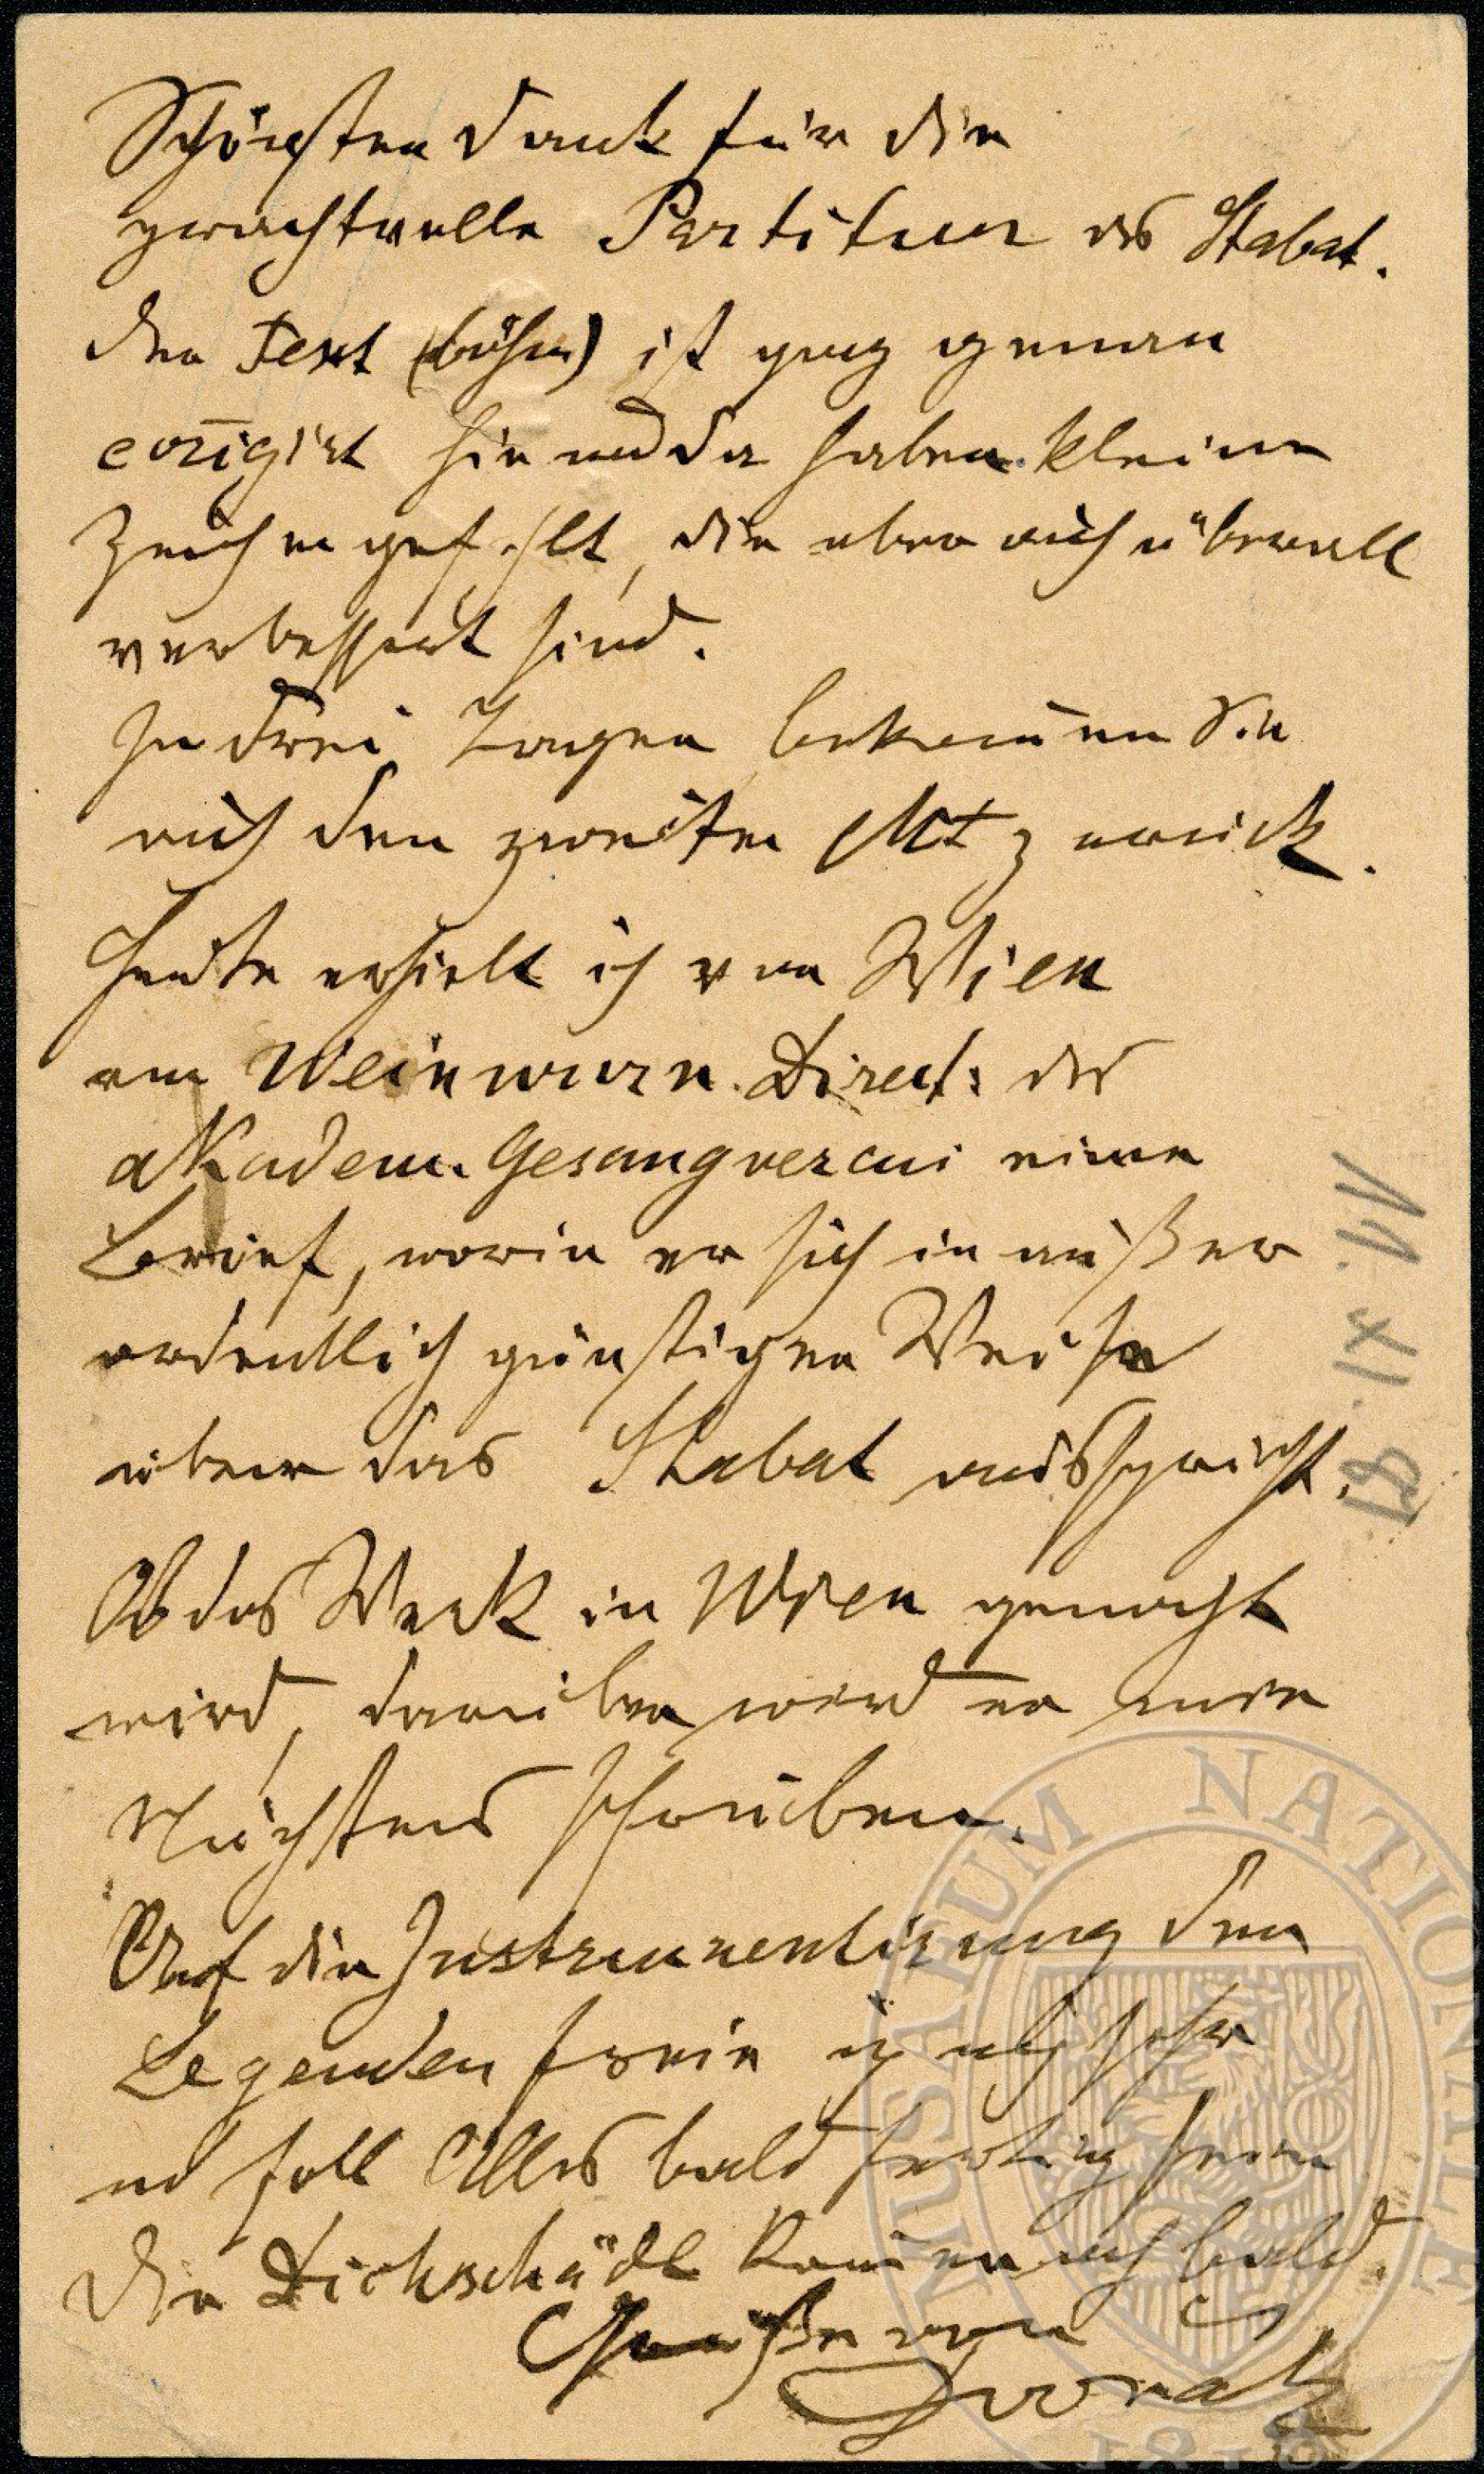 Schönsten Dank für die
prachtvolle Partitur des Stabat.
Der Text (böhm) ist ganz genau
corrigirt hie und da haben kleine
Zeichen gefehlt, die aber auch überall
verbessert sind.
In drei Tagen bekom̅en Sie
auch den zweiten Akt zurück.
Heute erhielt ich von Wien
von Weinwurm Direct: des
akadem. Gesangverein einen
Brief, worin er sich in außer
ordentlich günstigen Weise
über das Stabat ausspricht.
Ob das Werk in Wien gemacht
wird, darüber wird er mir
Nächstens schreiben.
Auf die Instrumentirung der
Legenden freue ich mich sehr
und soll Alles bald fertig sein
Die Dickschädl kom̅en auch bald.
Grüße von
Dvořak
MUSAEUM NATIONALE
1818